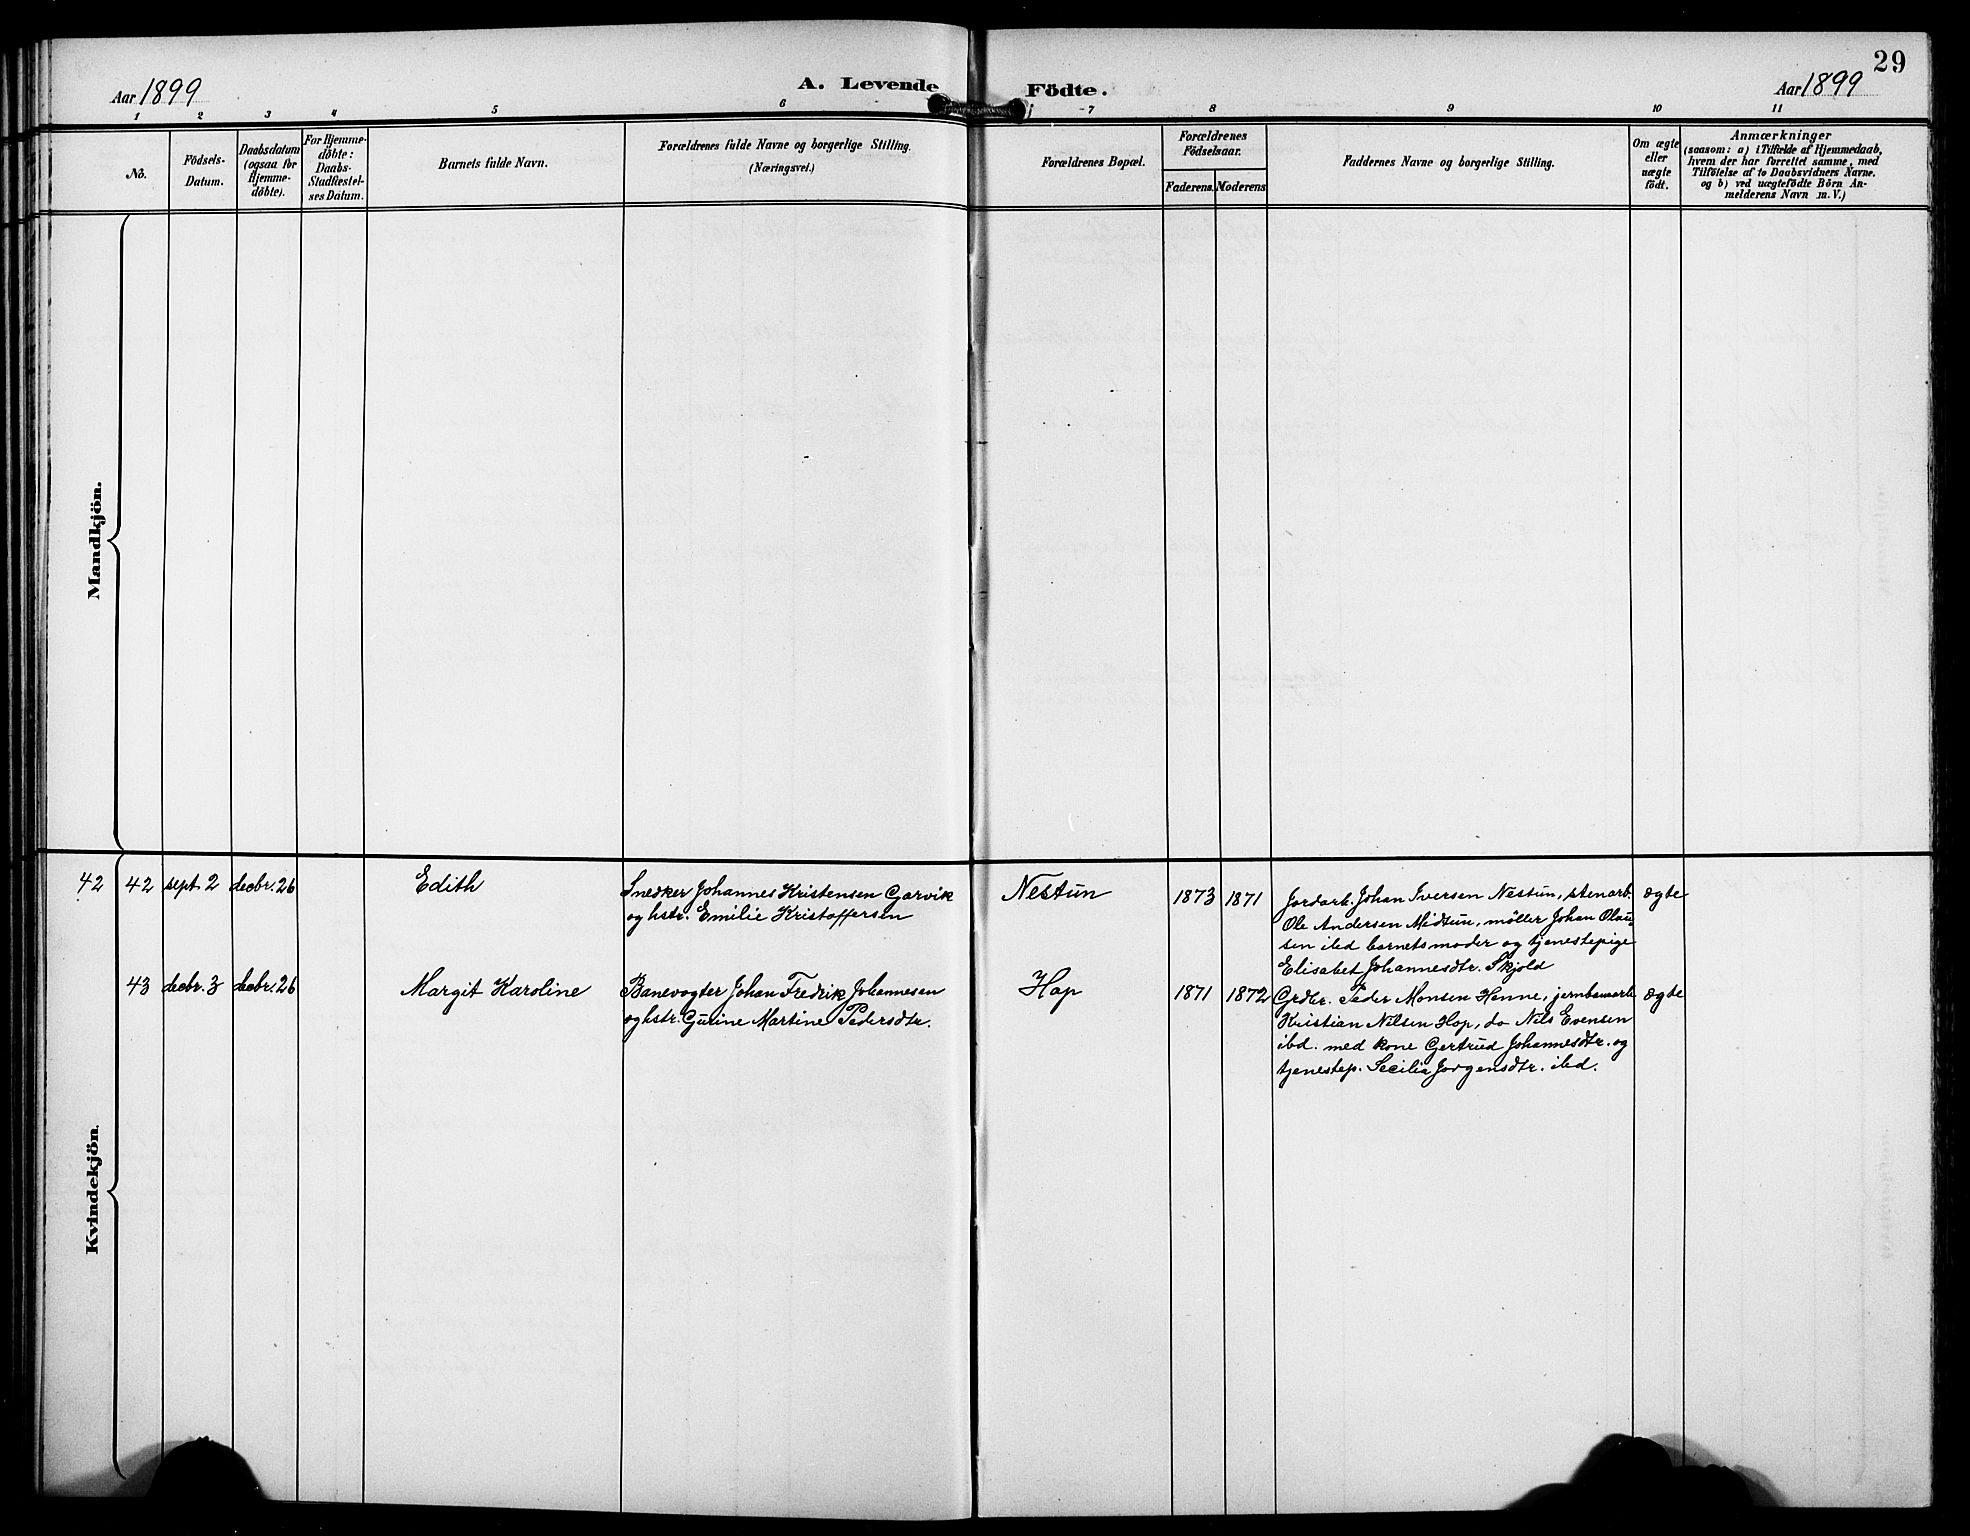 29
Aar 1899
A. Levende Födte.
Aar 1899
1 2 3 4 5 6 7 8 9 10 11
No.
Födsels-
Datum.
Daabsdatum
(ogsaa for
Hjemme-
döbte).
For Hjemme-
döbte:
Daabs-
Stadfæstel-
ses Datum.
Barnets fulde Navn.
Forældrenes fulde Navne og borgerlige Stilling.
(Næringsvei.)
Forældrenes Bopæl.
Forældrenes
Födselsaar.
Faderens.
Moderens
Faddernes Navne og borgerlige Stilling.
Om ægte
eller
uægte
födt.
Anmærkninger
(saasom: a) i Tilfælde af Hjemmedaab,
hvem der har forrettet samme, med
Tilföielse af to Daabsvidners Navne.
og b) ved uægtefödte Börn An-
melderens Navn m.V.)
Mandkjön.
Kvindekjön.
42 42 sept. 2 decbr. 26
Edith
Snedker Johannes Kristensen Garvik
og hstr. Emilie Kristoffersen
Nestun
1873 1871
Jordarb. Johan Iversen Nestun, stenarb.
Ole Andersen Midtun, möller Johan Olau-
sen ibd barnets moder og tjenestepige
Elisabet Johannesdtr. Skjold
ægte
43 decbr. 3 decbr. 26
Margit Karoline
Banevogter Johan Fredrik Johannesen
og hstr. Gurine Martine Pedersdtr.
Hop
1871 1872
Grdbr. Peder Monsen Henne, jernbanearb
Kristian Nilsen Hop, do Nils Evensen
ibd. med kone Gertrud Johannesdtr. og
tjenestep. Secilia Jørgensdtr. ibd.
ægte